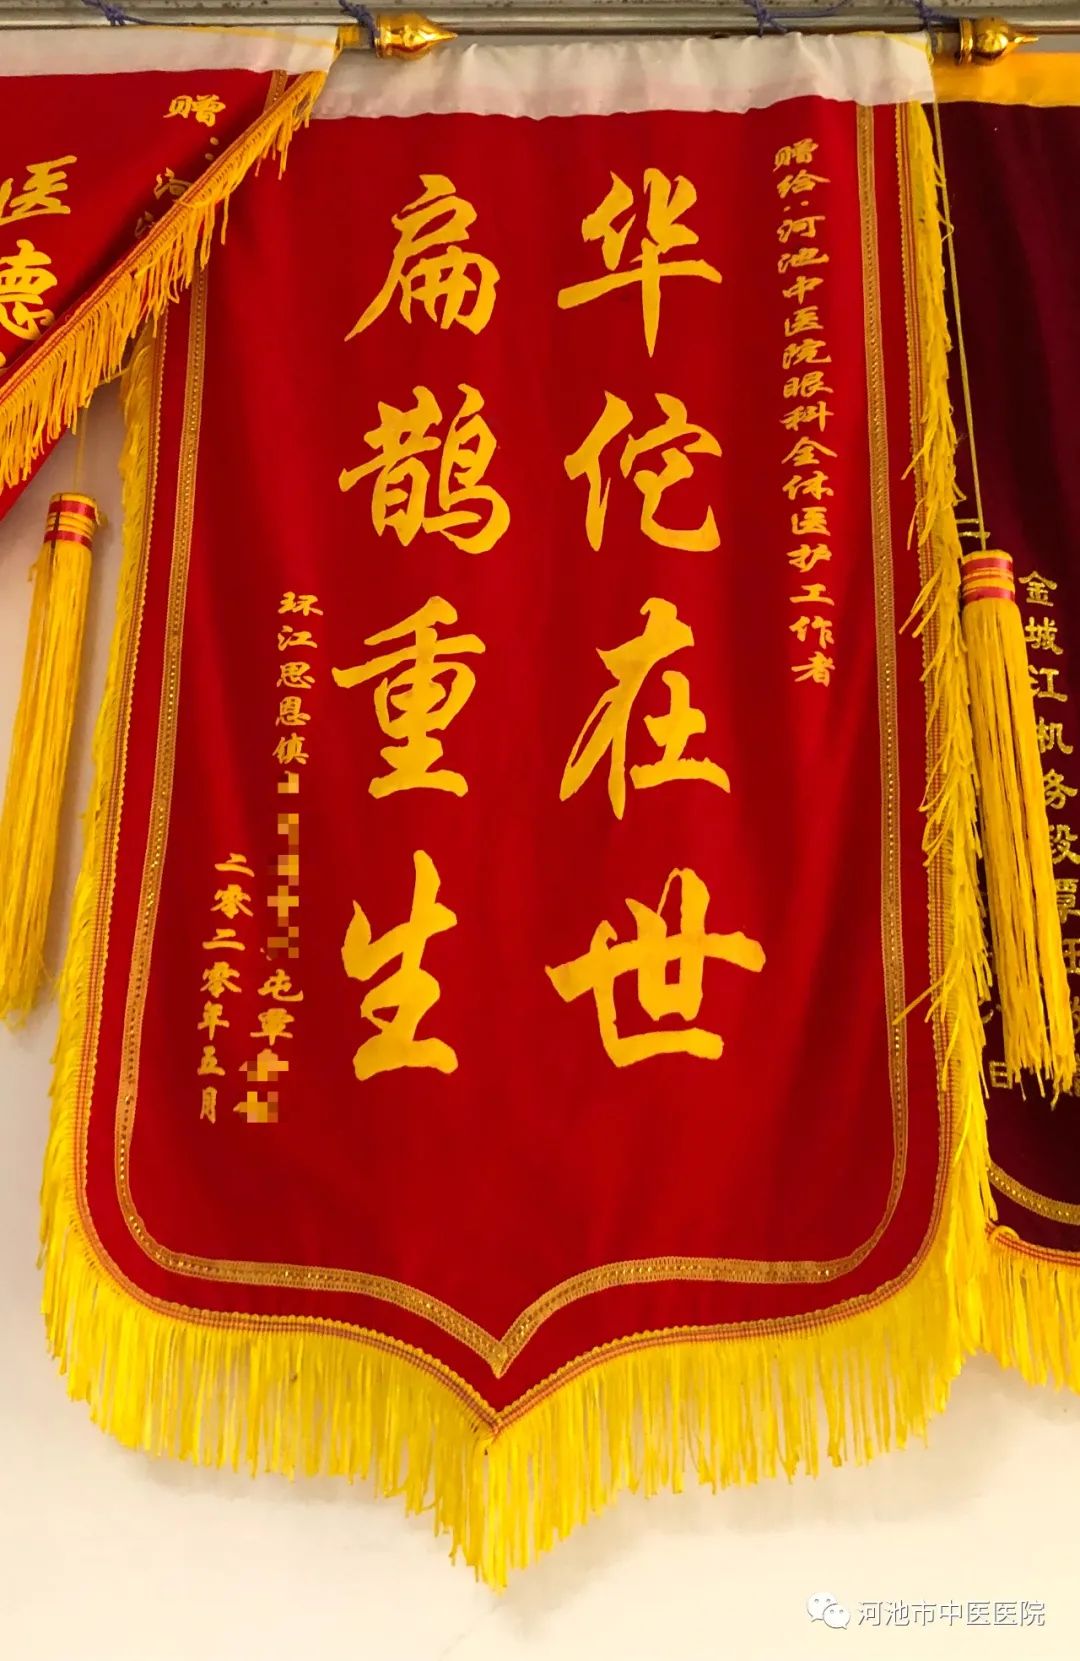 赠给：河池中医院眼科全体医护工作者
华佗在世
扁鹊重生
环江思恩镇
屯覃
二零二零年五月
赠：河
医德
金城江机务段覃
日
河池市中医医院